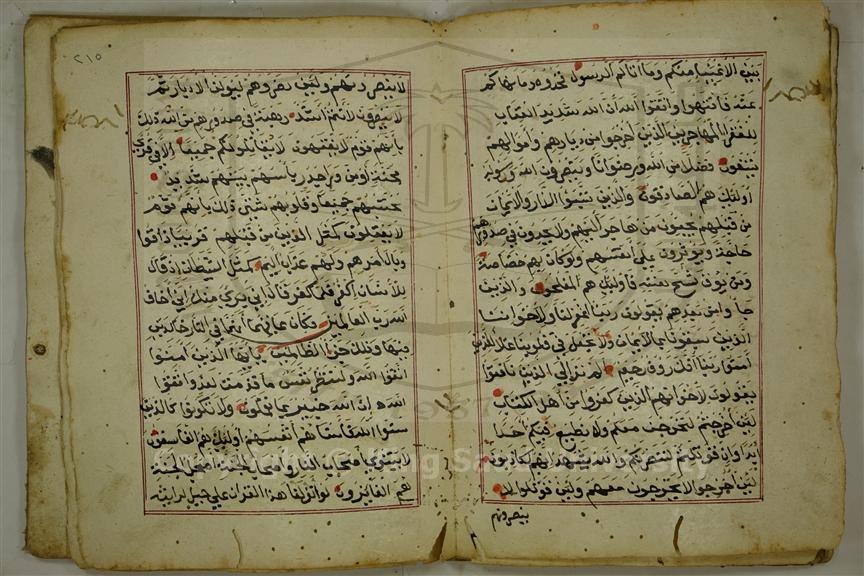 بين الاغنيا منكم وما اتاكم الرسول فخذوه وما نهاكم
عنه فانتهوا واتقوا الله ان الله شديد العقاب
للفقرا المهاجرين الذين اخرجوا من ديارهم واموالهم
يبتغون فضلا من الله ورضوانا وينصرون الله ورسوله
اوليك هم الصادقون والذين تبوؤا الدار والايمان
من قبلهم يحبون من هاجر اليهم ولا يجدون في صدورهم
حاجة ويوثرون على انفسهم ولو كان بهم خصاصة
ومن يوق شح نفسه فاوليك هم المفلحون والذين
جاوا من بعدهم يقولون ربنا اغفر لنا ولاخواننا
الذين سبقونا بالايمان ولا تجعل في قلوبنا غلا للذين
امنوا ربنا انك روف رحيم الم تر الي الذين نافقوا
يقولون لاخوانهم الذين كفروا من اهل الكتاب
لين اخرجتم لنخرجن معكم ولا نطيع فيكم احدا
ابدا وان قوتلتم لننصرنكم والله يشهد انهم لكاذبون
لين اخرجوا لا يخرجون معهم ولين قوتلوا لا
ينصرونهم
٢١٥
لا ينصرونهم ولين نصروهم ليولن الادبار ثم
لا ينصرون لانتم اشد رهبة في صدورهم من الله ذلك
بانهم قوم لا يفقهون لا يقاتلونكم جميعا الا في قرى
محصنة او من ورا جدر باسهم بينهم شديد
تحسبهم جميعا وقلوبهم شتى ذلك بانهم قوم
لا يعقلون كمثل الذين من قبلهم قريبا ذاقوا
وبال امرهم ولهم عذاب اليم كمثل الشيطان اذ قال
للانسان اكفر فلما كفر قال اني بري منك اني اخاف
الله رب العالمين فكان عاقبتهما انهما في النار خالدين
فيها وذلك جزا الظالمين يايها الذين امنوا
اتقوا الله ولتنظر نفس ما قدمت لغد واتقوا
الله ان الله خبير بما تعملون ولا تكونوا كالذين
نسوا الله فانساهم انفسهم اوليك هم الفاسقون
لا يستوي اصحاب النار واصحاب الجنة اصحاب الجنة
هم الفايزون لو انزلنا هذا القران على جبل لرايته